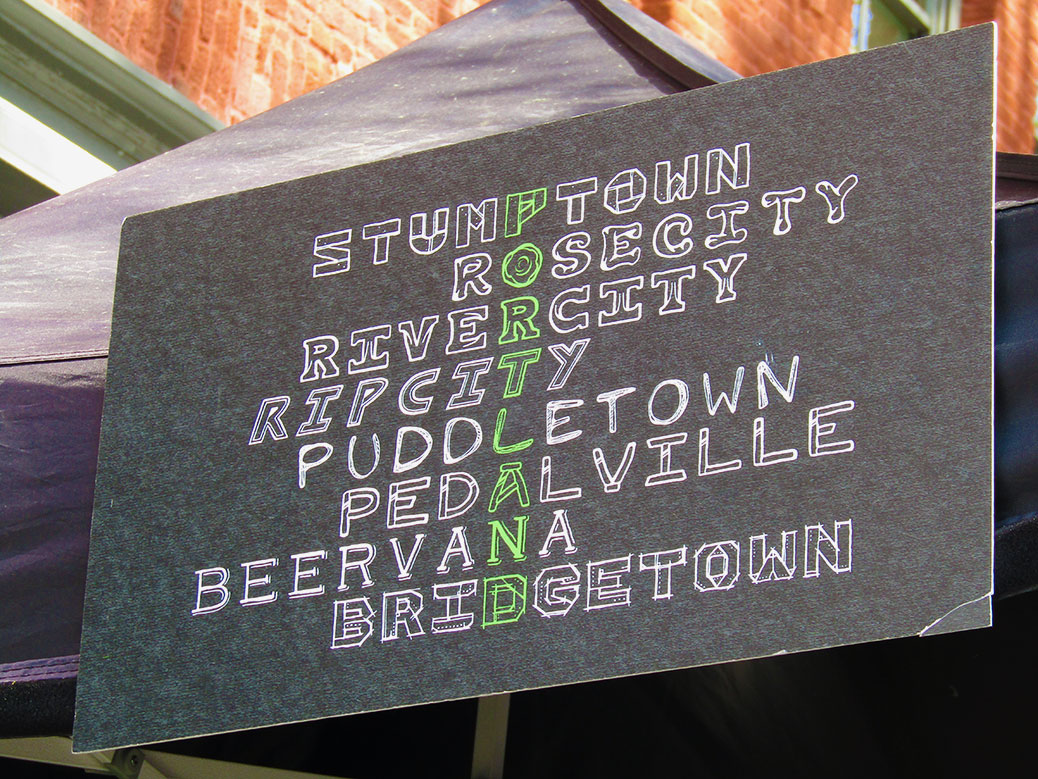 STUMPTOWN
ROSECITY
RIVERCITY
RIPCITY
PUDDLETOWN
PEDALVILLE
BEERVANA
BRIDGETOWN